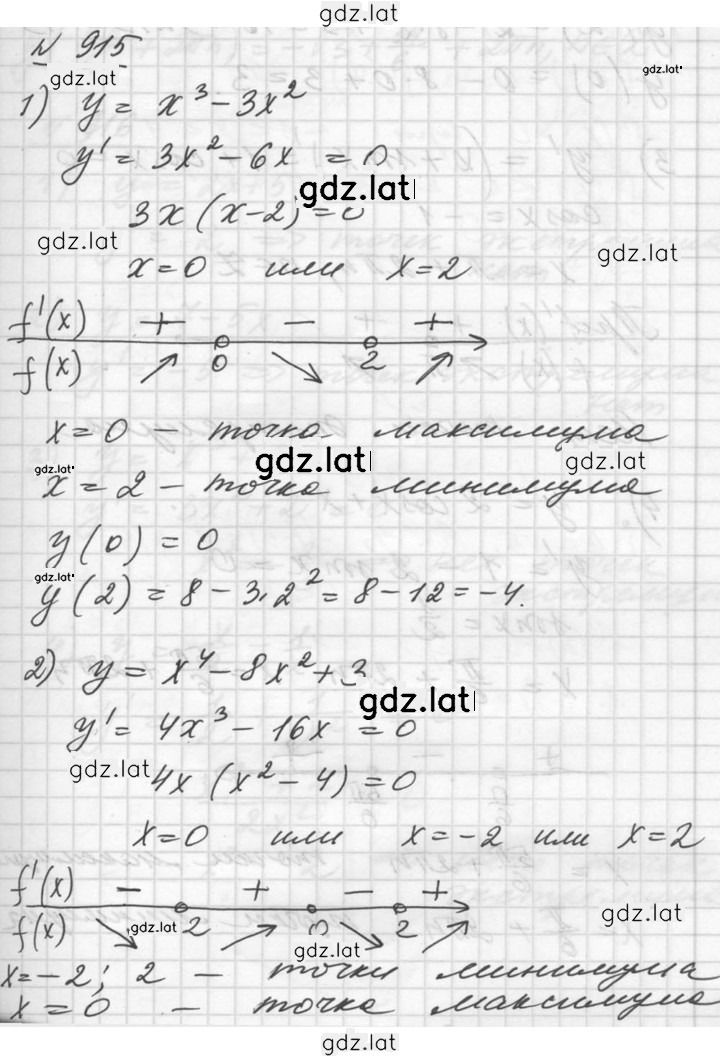 gdz.lat
№ 915
gdz.lat
gdz.lat
1) y = x³ - 3x²
y' = 3x² - 6x = 0
gdz.lat
3x (x - 2) = 0
gdz.lat
gdz.lat
x = 0 или x = 2
f'(x) + - +
0 2
f(x) ↗ ↘ ↗
x = 0 - точка максимума
gdz.lat
gdz.lat
gdz.lat
x = 2 - точка минимума
y(0) = 0
gdz.lat
y(2) = 8 - 3·2² = 8 - 12 = -4.
2) y = x⁴ - 8x² + 3
gdz.lat
y' = 4x³ - 16x = 0
gdz.lat
4x (x² - 4) = 0
x = 0 или x = -2 или x = 2
f'(x) - + - +
-2 0 2
f(x) ↘ ↗ ↘ ↗
gdz.lat
gdz.lat
gdz.lat
x = -2; 2 - точки минимума
x = 0 - точка максимума
gdz.lat